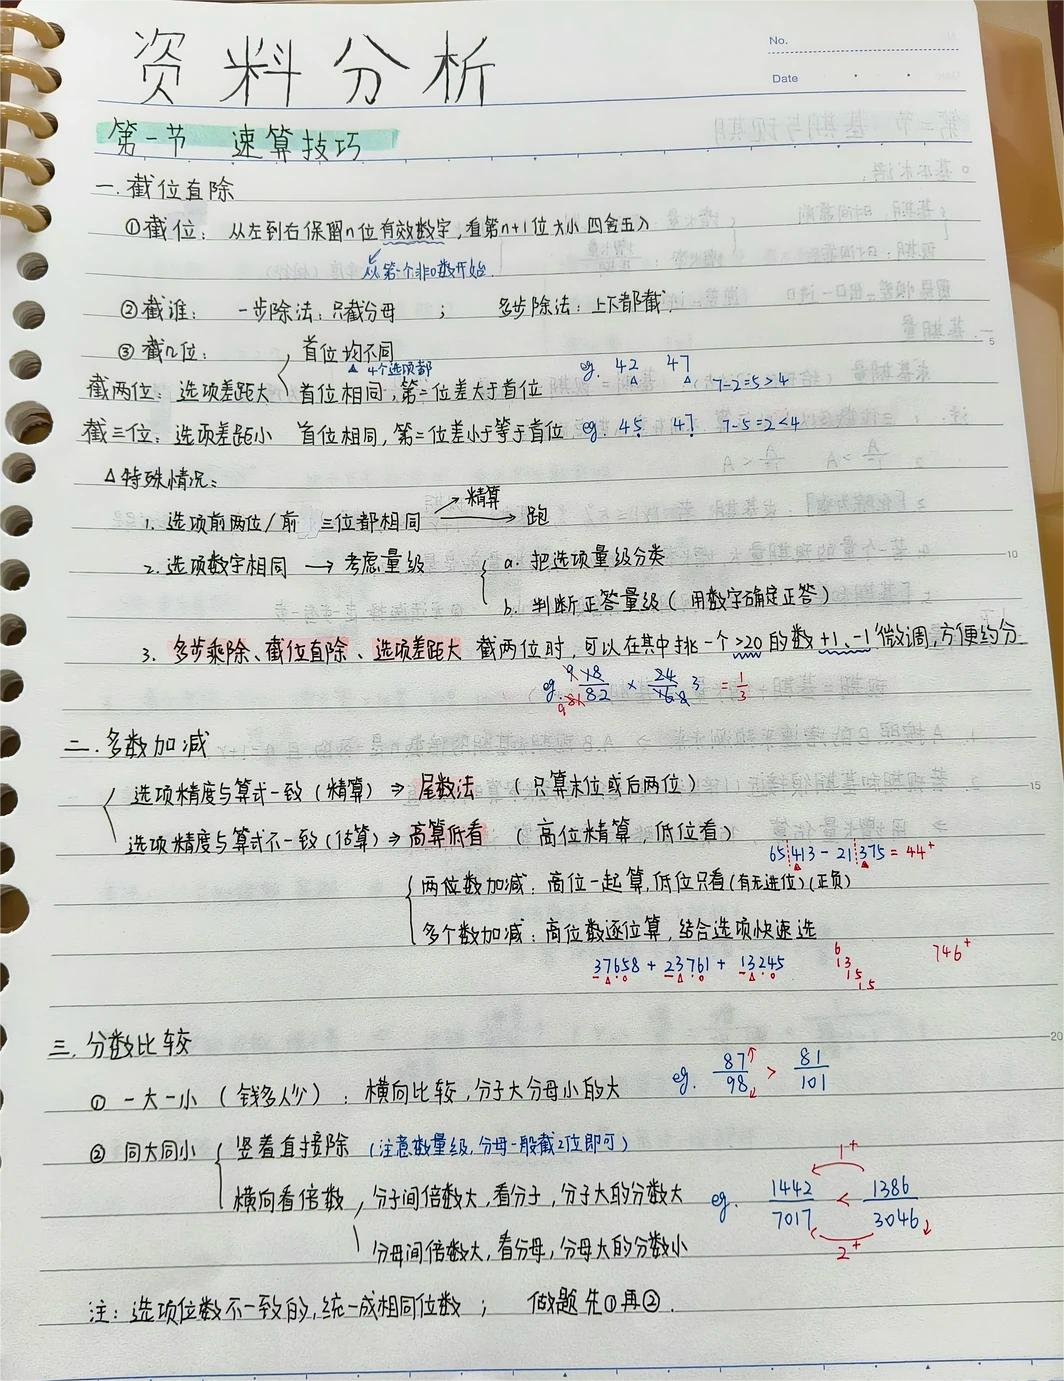 资料分析
No.
Date
第一节 速算技巧
一.截位直除
①截位：从左到右保留n位有效数字，看第n+1位大小四舍五入
从第一个非0数开始.
②截谁：一步除法：只截分母； 多步除法：上下都截.
③截几位：
首位均不同
4个选项都
截两位：选项差距大 首位相同，第二位差大于首位 eg. 42 47 7-2=5>4
截三位：选项差距小 首位相同，第二位差小于等于首位 eg. 45 47 7-5=2<4
△特殊情况：
1. 选项前两位/前三位都相同 → 精算 → 跑
2. 选项数字相同 → 考虑量级 a. 把选项量级分类
b. 判断正答量级（用数字确定正答）
3. 多步乘除、截位直除、选项差距大 截两位时，可以在其中挑一个>20的数+1、-1微调，方便约分
= 1/3
二.多数加减
选项精度与算式一致（精算）⇒ 尾数法 （只算末位或后两位）
选项精度与算式不一致（估算）⇒ 高算低看 （高位精算，低位看）
65413 - 21375 = 44+
两位数加减：高位一起算，低位只看（有无进位）（正负）
多个数加减：高位数逐位算，结合选项快速选
37658 + 23761 + 13245 6 13 15 15 746+
三.分数比较
① 一大一小（钱多人少）：横向比较，分子大分母小的大 eg. 87/98 > 81/101
② 同大同小 竖着直接除（注意数量级，分母一般截2位即可）
横向看倍数，分子间倍数大，看分子，分子大的分数大 eg. 1442/7017 < 1386/3046 1+ 2+
分母间倍数大，看分母，分母大的分数小
注：选项位数不一致的，统一成相同位数； 做题先①再②.
5
10
15
20